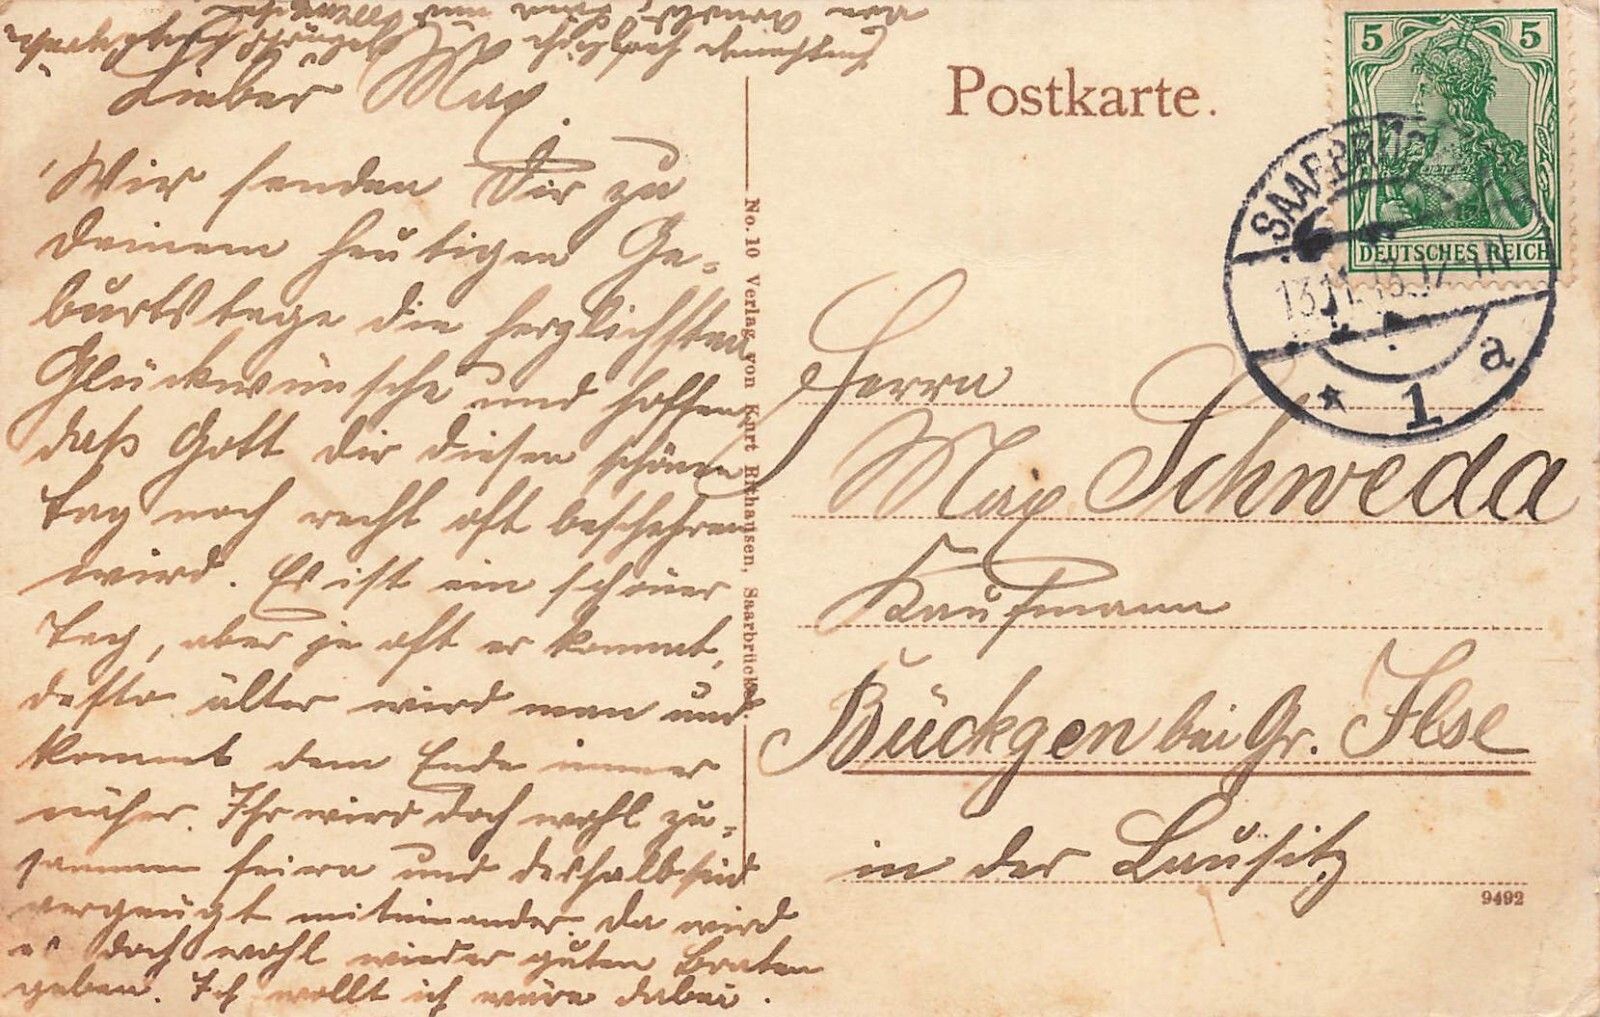 Lieber Max
Wir senden Dir zu
deinem heutigen Ge-
burtstage die herzlichsten
Glückwünsche und hoffen
daß Gott dir diesen schönen
Tag noch recht oft bescheren
wird. Es ist ein schöner
Tag, aber je oft er kommt,
desto älter wird man und
kommt dem Ende immer
näher. Ihr wird doch wohl zu-
sammen feiern und deshalb seid
vergnügt miteinander. Da wird
es doch wohl wieder guten Braten
geben. Ich wollt ich wäre dabei.
herzlich
von Arnold, und
No. 10 Verlag von Kurt Rithausen, Saarbrücken.
Postkarte.
5 5
DEUTSCHES REICH
SAARBRÜCKEN
13.11.13.
* 1 a
Herrn
Max Schweda
Kaufmann
Bückgen bei Gr. Ilse
in der Lausitz
9492